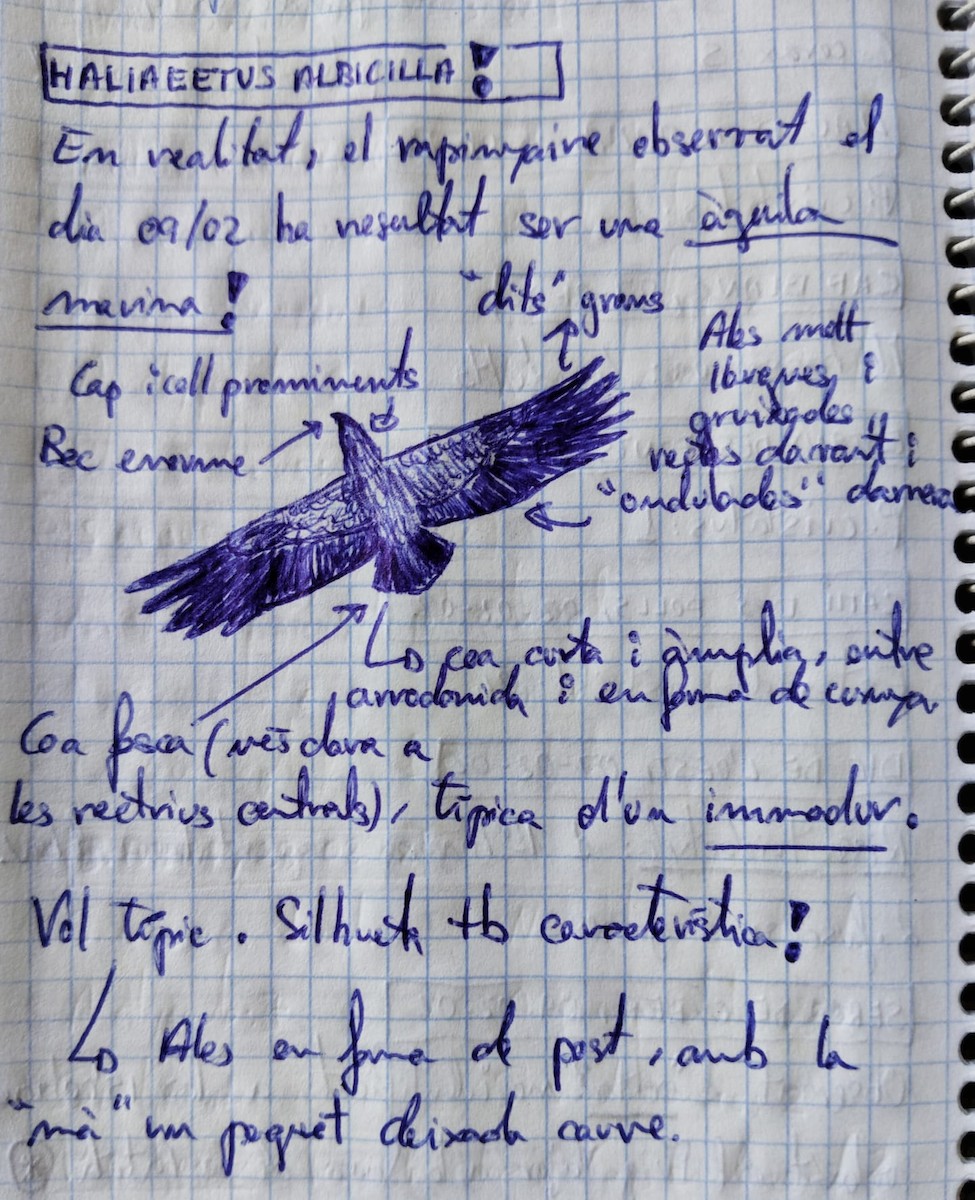 HALIAEETUS ALBICILLA!
En realitat, el rapinyaire observat el
dia 09/02 ha resultat ser una àguila
marina!
"dits" grans
Cap i coll prominents
Bec enorme
Ales molt
llargues i
gruixudes,
rectes davant i
"ondulades" darrera
coa curta i àmplia, entre
arrodonida i en forma de cunya.
Coa fosca (més clara a
les rectrius centrals), típica d'un immadur.
Vol típic. Silhueta tb característica!
Ales en forma de post, amb la
"mà" un poquet deixada caure.